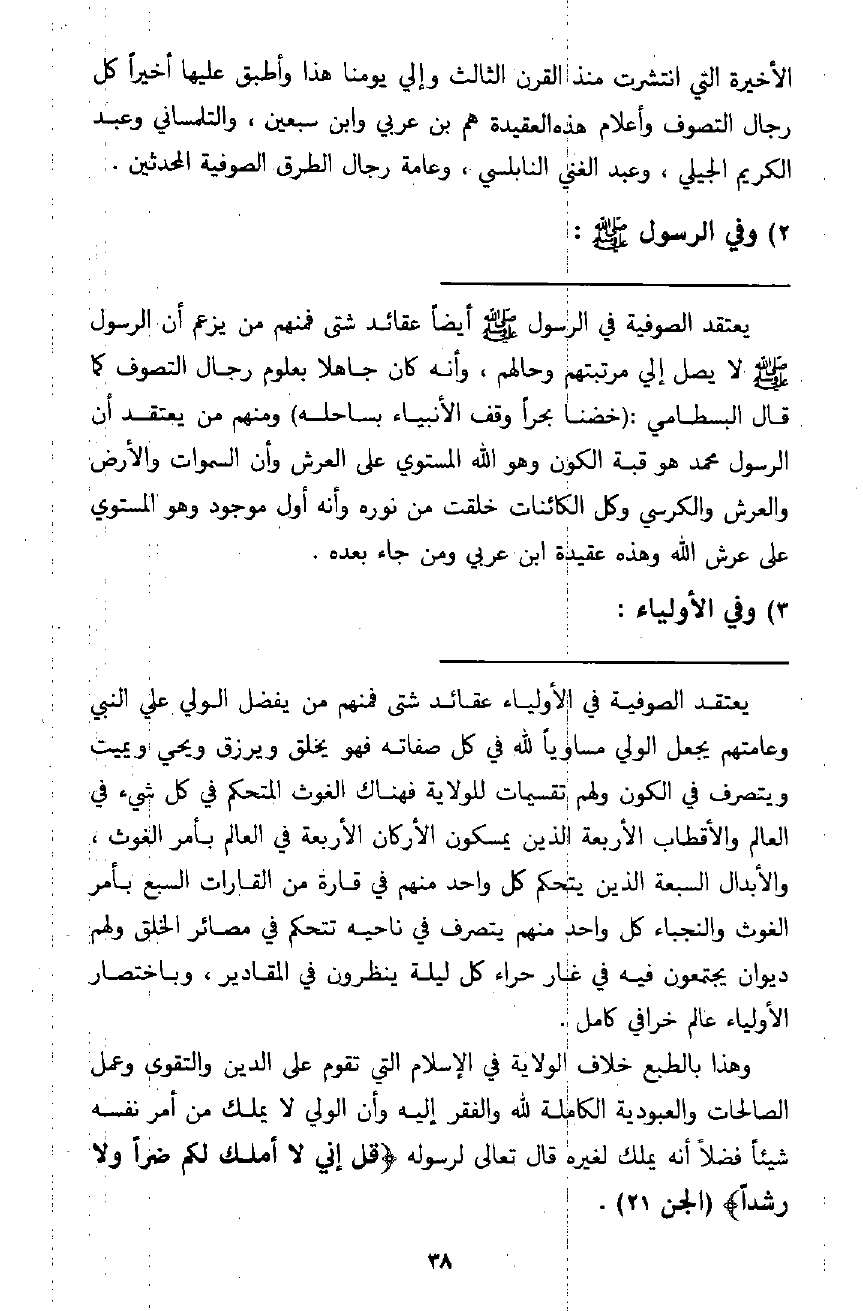 الأخيرة التي انتشرت منذ القرن الثالث وإلي يومنا هذا وأطبق عليها أخيراً كل
رجال التصوف وأعلام هذه العقيدة هم بن عربي وابن سبعين ، والتلمساني وعبد
الكريم الجيلي ، وعبد الغني النابلسي ، وعامة رجال الطرق الصوفية المحدثين .
٢) وفي الرسول ﷺ :
يعتقد الصوفية في الرسول ﷺ أيضاً عقائد شتى فمنهم من يزعم أن الرسول
ﷺ لا يصل إلي مرتبتهم وحالهم ، وأنه كان جاهلا بعلوم رجال التصوف كما
قال البسطامي :(خضنا بحراً وقف الأنبياء بساحله) ومنهم من يعتقد أن
الرسول محمد هو قبة الكون وهو الله المستوي على العرش وأن السموات والأرض
والعرش والكرسي وكل الكائنات خلقت من نوره وأنه أول موجود وهو المستوي
على عرش الله وهذه عقيدة ابن عربي ومن جاء بعده .
٣) وفي الأولياء :
يعتقد الصوفية في الأولياء عقائد شتى فمنهم من يفضل الولي علي النبي
وعامتهم يجعل الولي مساوياً لله في كل صفاته فهو يخلق ويرزق ويحي ويميت
ويتصرف في الكون ولهم تقسيمات للولاية فهناك الغوث المتحكم في كل شيء في
العالم والأقطاب الأربعة الذين يمسكون الأركان الأربعة في العالم بأمر الغوث ،
والأبدال السبعة الذين يتحكم كل واحد منهم في قارة من القارات السبع بأمر
الغوث والنجباء كل واحد منهم يتصرف في ناحيه تتحكم في مصائر الخلق ولهم
ديوان يجتمعون فيه في غار حراء كل ليلة ينظرون في المقادير ، وباختصار
الأولياء عالم خرافي كامل .
وهذا بالطبع خلاف الولاية في الإسلام التي تقوم على الدين والتقوى وعمل
الصالحات والعبودية الكاملة لله والفقر إليه وأن الولي لا يملك من أمر نفسه
شيئاً فضلاً أنه يملك لغيره قال تعالى لرسوله ﴿قل إني لا أملك لكم ضراً ولا
رشداً﴾ (الجن ٢١) .
٣٨